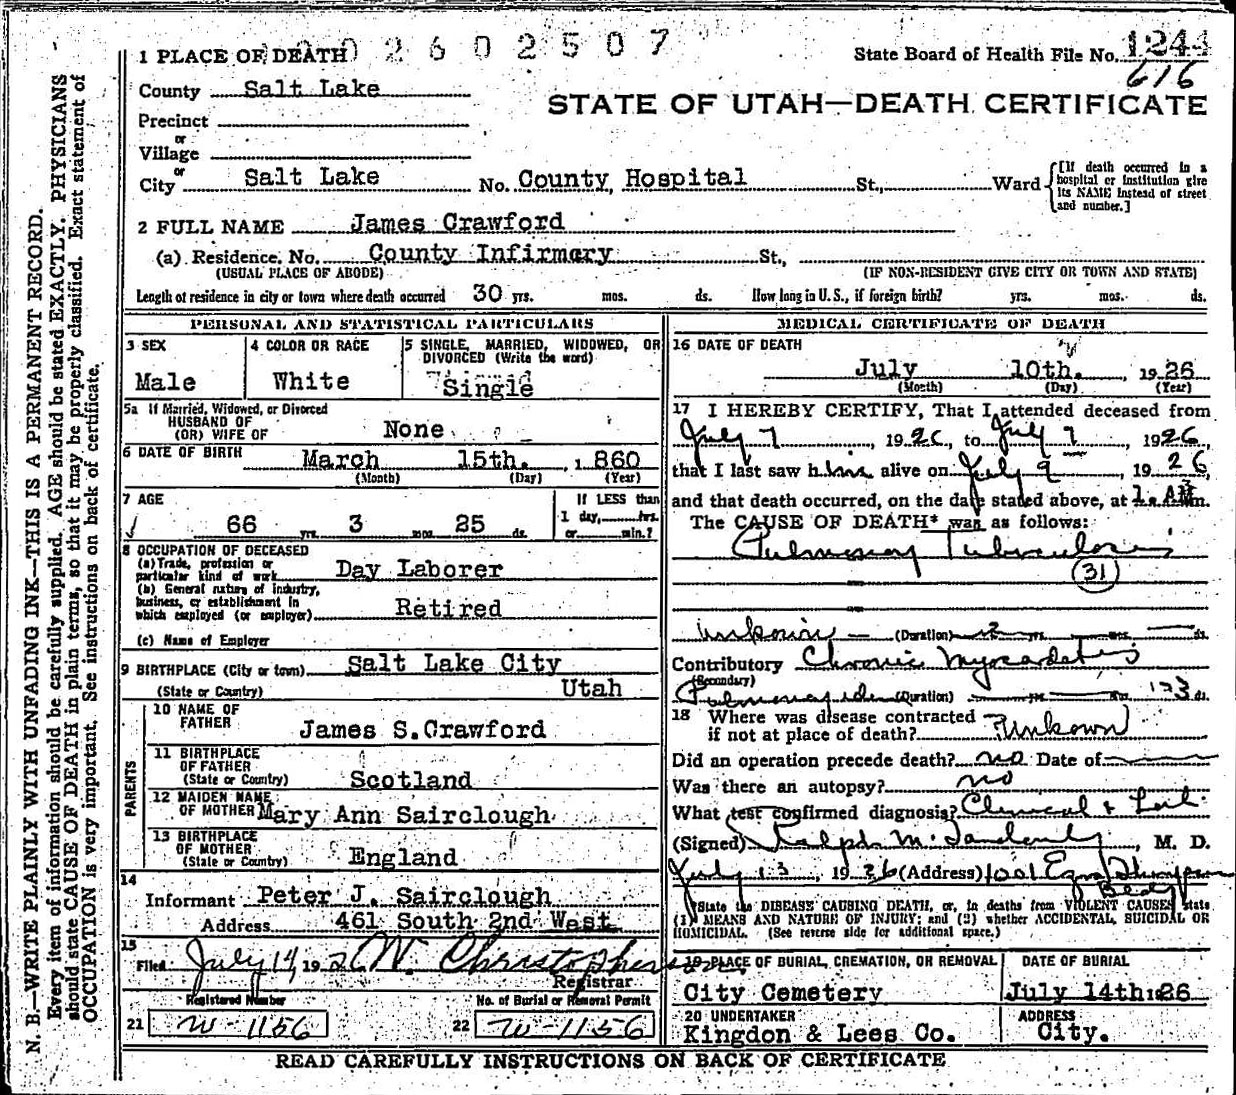 N. B.—WRITE PLAINLY WITH UNFADING INK—THIS IS A PERMANENT RECORD.
Every item of information should be carefully supplied. AGE should be stated EXACTLY. PHYSICIANS
should state CAUSE OF DEATH in plain terms, so that it may be properly classified. Exact statement of
OCCUPATION is very important. See instructions on back of certificate.
2602507
1 PLACE OF DEATH
State Board of Health File No. 1244
616
County Salt Lake
STATE OF UTAH—DEATH CERTIFICATE
Precinct
or
Village
or
City Salt Lake No. County Hospital St., Ward
[If death occurred in a
hospital or institution give
its NAME instead of street
and number.]
2 FULL NAME James Crawford
(a) Residence. No. County Infirmary St.,
(USUAL PLACE OF ABODE) (IF NON-RESIDENT GIVE CITY OR TOWN AND STATE)
Length of residence in city or town where death occurred 30 yrs. mos. ds. How long in U.S., if foreign birth? yrs. mos. ds.
PERSONAL AND STATISTICAL PARTICULARS
3 SEX
Male
4 COLOR OR RACE
White
5 SINGLE, MARRIED, WIDOWED, OR
DIVORCED (Write the word)
Single
5a If Married, Widowed, or Divorced
HUSBAND OF
(OR) WIFE OF None
6 DATE OF BIRTH March 15th. , 1 860
(Month) (Day) (Year)
7 AGE
66 yrs. 3 mos. 25 ds.
If LESS than
1 day, hrs.
or min.?
8 OCCUPATION OF DECEASED
(a) Trade, profession or
particular kind of work Day Laborer
(b) General nature of industry,
business, or establishment in
which employed (or employer) Retired
(c) Name of Employer
9 BIRTHPLACE (City or town) Salt Lake City
(State or Country) Utah
PARENTS
10 NAME OF
FATHER James S. Crawford
11 BIRTHPLACE
OF FATHER
(State or Country) Scotland
12 MAIDEN NAME
OF MOTHER Mary Ann Sairclough
13 BIRTHPLACE
OF MOTHER
(State or Country) England
14
Informant Peter J. Sairclough
Address 461 South 2nd West
15
Filed July 14, 1926 W. Christopherson
Registrar
Registered Number
21 W-1156
No. of Burial or Removal Permit
22 W-1156
MEDICAL CERTIFICATE OF DEATH
16 DATE OF DEATH
July 10th. , 1926
(Month) (Day) (Year)
17 I HEREBY CERTIFY, That I attended deceased from
July 7 , 1926, to July 7 , 1926,
that I last saw him alive on July 9 , 1926,
and that death occurred, on the date stated above, at 1. AM m.
The CAUSE OF DEATH* was as follows:
Pulmonary Tuberculosis
31
unknown — (Duration) yrs. ds.
Contributory Chronic Myocarditis
(Secondary)
Pulmonary (Duration) ds.
18 Where was disease contracted
if not at place of death? Unkown
Did an operation precede death? no Date of
Was there an autopsy? no
What test confirmed diagnosis? Clinical &
(Signed) Ralph M. , M. D.
July 13 , 1926 (Address) 1001 Ezra Thompson
Bldg
*State the DISEASE CAUSING DEATH, or, in deaths from VIOLENT CAUSES state
(1) MEANS AND NATURE OF INJURY; and (2) whether ACCIDENTAL, SUICIDAL OR
HOMICIDAL. (See reverse side for additional space.)
19 PLACE OF BURIAL, CREMATION, OR REMOVAL
City Cemetery
DATE OF BURIAL
July 14th 1926
20 UNDERTAKER
Kingdon & Lees Co.
ADDRESS
City.
READ CAREFULLY INSTRUCTIONS ON BACK OF CERTIFICATE